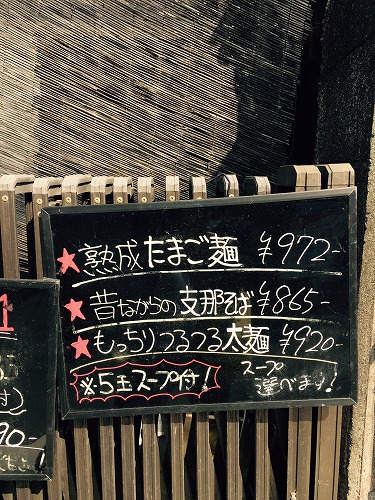 ★熟成たまご麺 ¥972-
★昔ながらの支那そば ¥865-
★もっちりつるつる大麺 ¥920-
※5玉スープ付!
スープ
選べます!
1
付)
90-